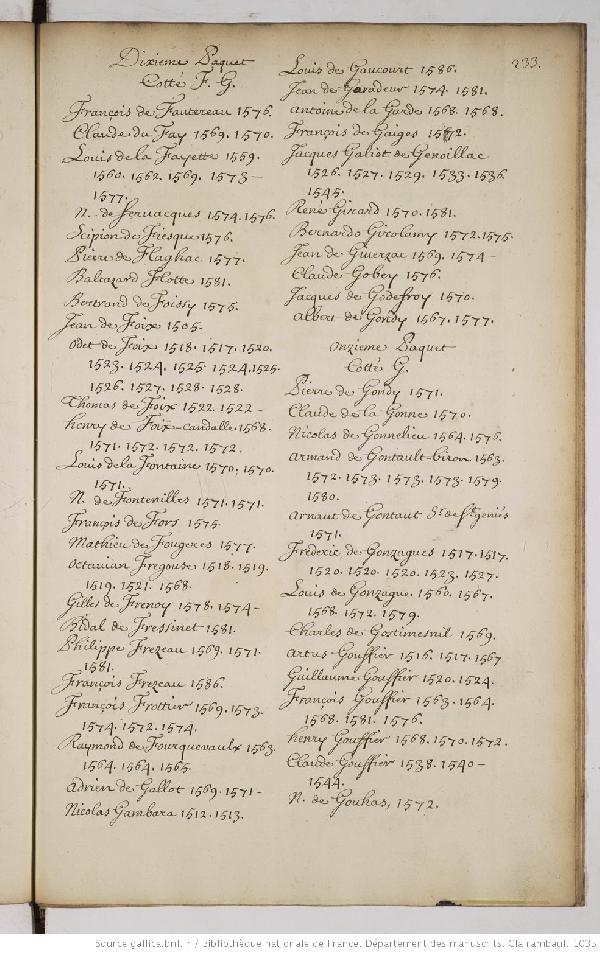 233.
Dixieme Paquet
Cotté F. G.
François de Fautereau 1576.
Claude du Fay 1569. 1570.
Louis de la Fayette 1569.
1560. 1562. 1569. 1573 –
1577.
N. de fervacques 1574. 1576.
Scipion de Fiesque 1576.
Pierre de Flaghac 1577.
Baltazard Flotte 1581.
Bertrand de Foissy 1575.
Jean de Foix 1505.
Odet de Foix 1518. 1517. 1520.
1523. 1524. 1525. 1524. 1525.
1526. 1527. 1528. 1528.
Thomas de Foix 1522. 1522 –
henry de Foix-candalle 1568.
1571. 1572. 1572. 1572.
Louis dela Fontaine 1570, 1570.
1571.
N. de Fontenilles 1571. 1571.
François de Fors 1575.
Mathieu de Fougeres 1577.
Octavian Fregouse 1518. 1519.
1519. 1521. 1568.
Gilles de Frenoy 1578. 1574 –
Bidal de Fressinet 1581.
Philippe Frezeau 1569. 1571.
1581.
François Frezeau 1586.
François Frottier 1569. 1573.
1574. 1572. 1574.
Raymond de Fourquevaulx 1563.
1564. 1564. 1565.
Adrien de Gallot 1569. 1571 –
Nicolas Gambara 1512. 1513.
Louis de Gaucourt 1586.
Jean de Garadeur 1574. 1581.
Antoine de la Garde 1568. 1568.
François de Gaiges 1572.
Jacques Galiot de Genoillac
1526. 1527. 1529. 1533. 1536.
1545.
René Girard 1570. 1581.
Bernardo Girolamy 1572. 1575.
Jean de Guierzac 1569. 1574 –
Claude Gobey 1576.
Jacques de Godefroy 1570.
Albert de Gondy 1567. 1577.
Onzieme Paquet
Cotté G.
Pierre de Gondy 1571.
Claude de la Gonne 1570.
Nicolas de Gonnelieu 1564. 1576.
Armand de Gontault-biron 1563.
1572. 1573. 1573. 1573. 1579.
1580.
Arnaut de Gontaut Sr. de St. geniés
1571.
Frederic de Gonzagues 1517. 1517.
1520. 1520. 1520. 1523. 1527.
Louis de Gonzague. 1560. 1567.
1568. 1572. 1579.
Charles de Gostimesnil 1569.
Artus Gouffier 1516. 1517. 1567
Guillaume Gouffier 1520. 1524.
François Gouffier 1563. 1564.
1568. 1581. 1576.
henry Gouffier 1568. 1570. 1572.
Claude Gouffier 1538. 1540 –
1544.
N. de Gouhas, 1572.
Source gallica.bnf.fr / Bibliothèque nationale de France. Département des manuscrits. Clairambault 1035